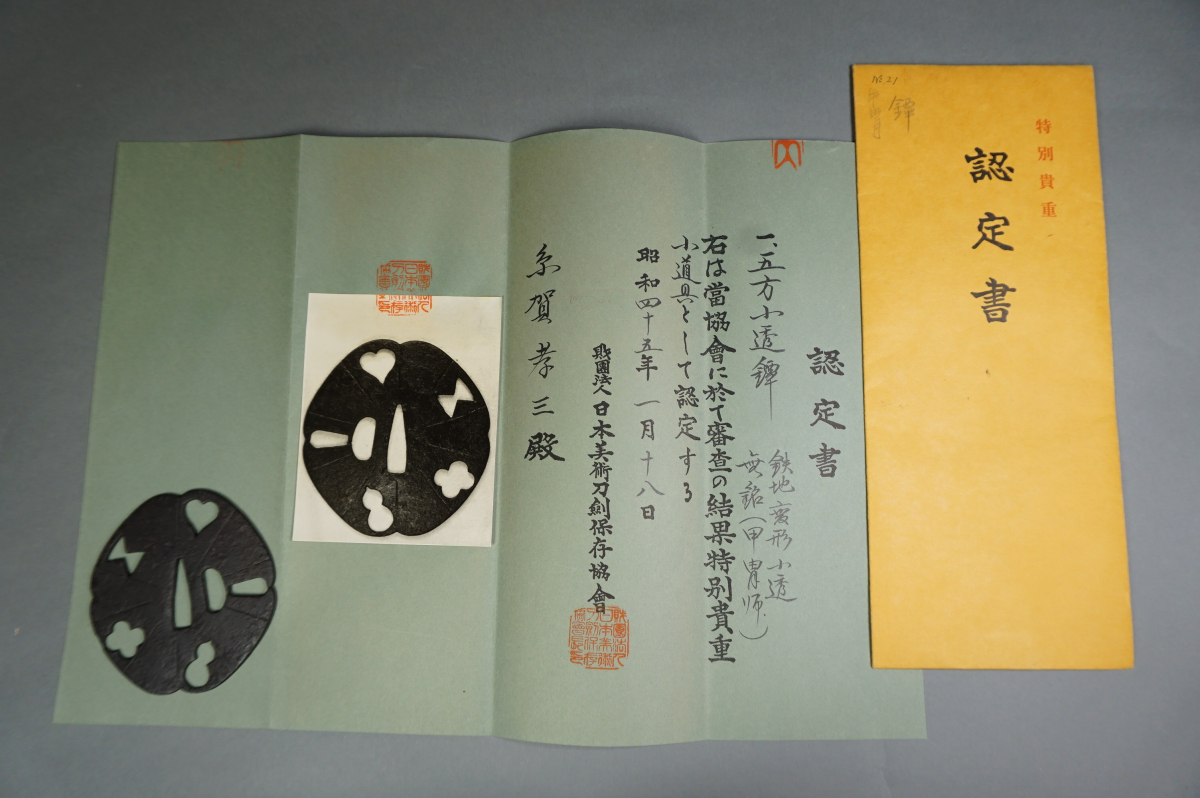 認定書
一、五方小透鐔
鉄地変形小透
無銘(甲冑師)
右は當協會に於て審査の結果特別貴重
小道具として認定する
昭和四十五年一月十八日
財團法人日本美術刀劍保存協會
糸賀孝三殿
特別貴重
認定書
鐔
No 21